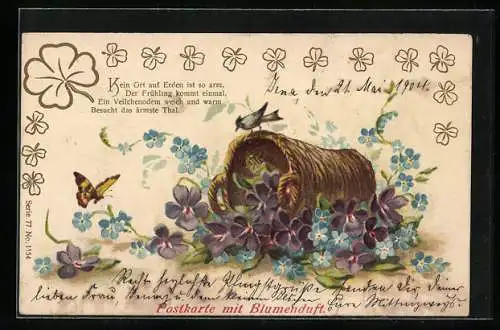 Kein Ort auf Erden ist so arm,
Der Frühling kommt einmal,
Ein Veilchenodem weich und warm
Besucht das ärmste Thal.
Jena, den 21. Mai 1904.
Serie 77. No. 1154
Recht herzliche Pfingstgrüße senden Dir & Deiner
lieben Frau
Postkarte mit Blumenduft.